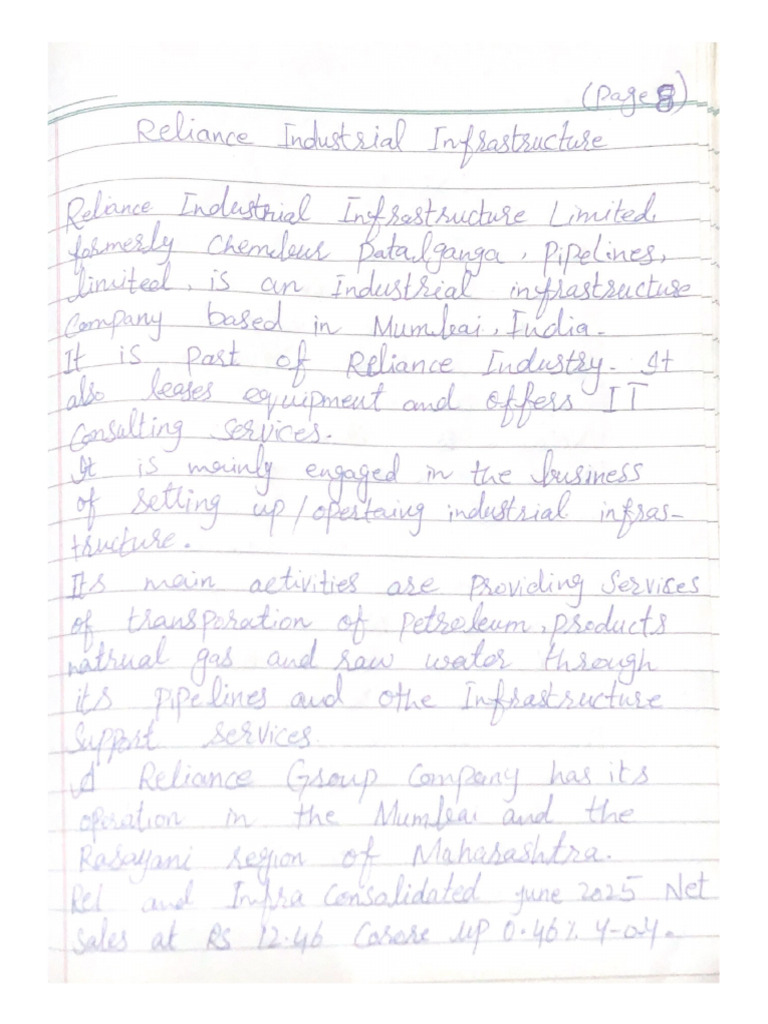 (Page 8)
Reliance Industrial Infrastructure
Reliance Industrial Infrastructure Limited,
formerly Chembur Patalganga, Pipelines,
limited, is an Industrial infrastructure
Company based in Mumbai, India.
It is Part of Reliance Industry. It
also leases equipment and offers IT
Consulting services.
It is mainly engaged in the business
of setting up/opertaing industrial infras-
tructure.
Its main activities are Providing Services
of transporation of Petroleum, products
natrual gas and raw water through
its pipelines and othe Infrastructure
Support services.
A Reliance Group Company has its
operation in the Mumbai and the
Rasayani region of Maharashtra.
Rel and Infra Consolidated june 2025 Net
Sales at Rs 12.46 Corore up 0.46% Y-o-Y.